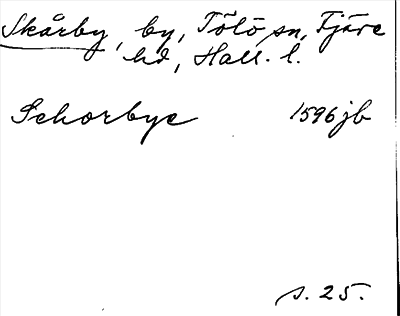 Skårby, by, Tölö sn, Fjäre
hd, Hall. l.
Schorbye 1596 jb
s. 25.